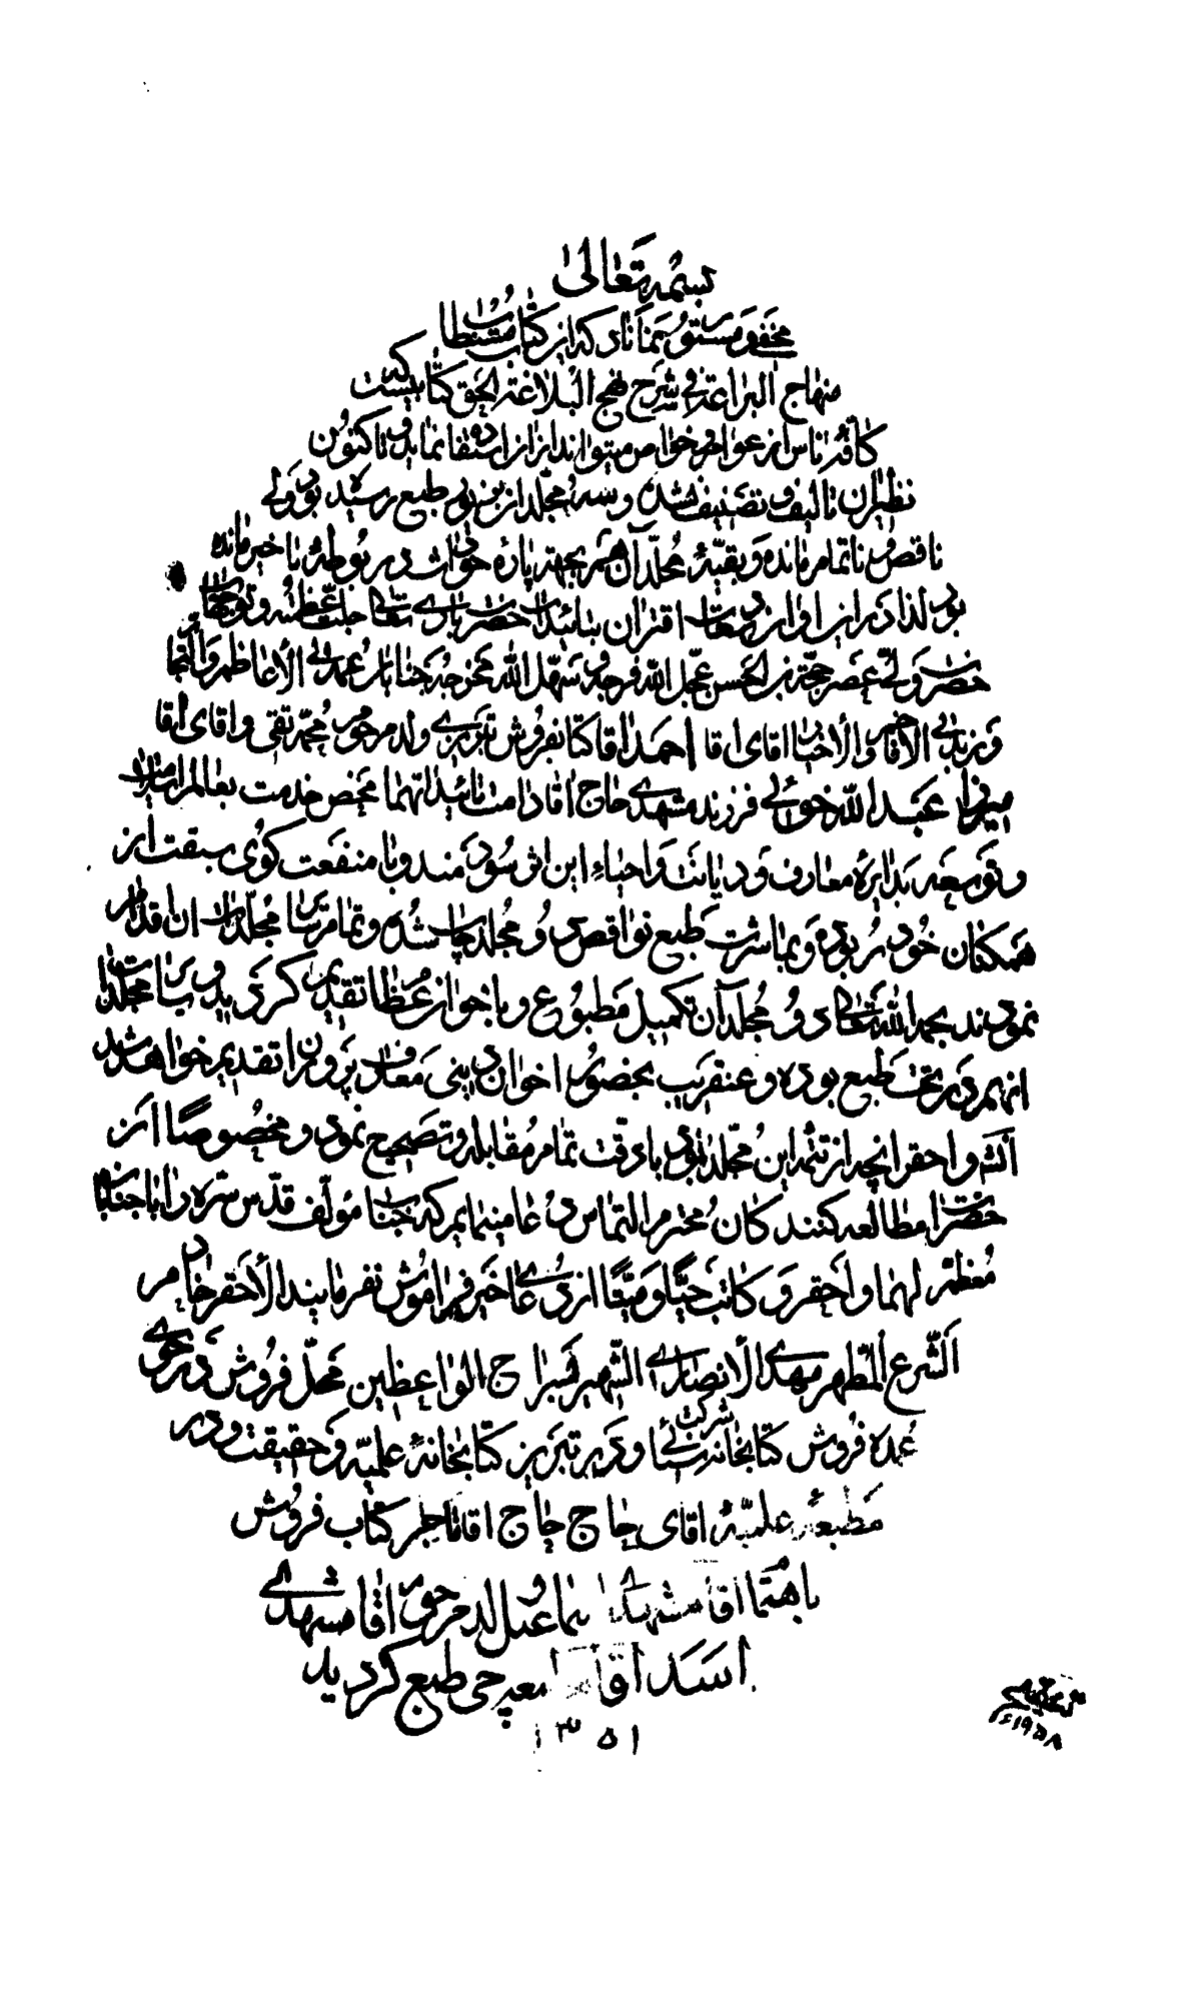 بسمه تعالی
مخفی و مستور نماناد که از کتاب مستطاب
منهاج البراعة فی شرح نهج البلاغة الحق کتابیست که
کافهٔ ناس از عوام و خواص میتوانند از آن استفاده نمایند و تا کنون
نظیر آن تألیف و تصنیف نشده و سه مجلد از این پیش بطبع رسیده بود ولی
ناقص و ناتمام مانده و بقیهٔ مجلد آن هم بجهة پارهٔ حوادث در بوطهٔ تأخیر مانده
بود لذا در این اوان سعادت اقتران بتائیدات حضرت باری تعالی جلت عظمته و توجهات
حضرت ولی عصر حجة بن الحسن عجل الله فرجه و سهل الله مخرجه جنابان عمدتی الأعاظم و الفخام
و زبدتی الأفاخم و الأحباب آقای آقا احمد آقا کتابفروش تبریزی ولد مرحوم محمد تقی و آقای آقا
میرزا عبد الله خوئی فرزند مشهدی حاج آقا دامت تائیداتهما محض خدمت بعالم اسلامیت
و توسعه بدایرهٔ معارف و دیانت و احیاء این اثر سودمند و با منفعت گوی سبقت از
همکنان خود ربوده و بمباشرت طبع نواقص دو مجلد چاپ شده و تمام سایر مجلدات آن اقدام
نمودند بحمد الله تعالی دو مجلد آن تکمیل مطبوع و باخوان عظام تقدیم گردید و سایر مجلدات
آنهم در تحت طبع بوده و عنقریب بحضور اخوان دینی معارف پروران تقدیم خواهد شد
و احقر آنچه از تتمه این مجلد بود با دقت تمام مقابله و تصحیح نمود و مخصوصا از
حضرات مطالعه کنندکان محترم التماس دعا مینمایم که جناب مؤلف قدس سره را با جنابان
معظم لهما و احقر و کاتب حیا و میتا از دعای خیر فراموش نفرمایند الأحقر خادم
الشرع المطهر مهدی الأنصاری الشهیر بسراج الواعظین محل فروش در خوی
عمده فروش کتابخانه شرکت و در تبریز کتابخانهٔ علمیه و حقیقت و در
مطبعهٔ علمیهٔ آقای حاج حاج آقا تاجر کتاب فروش
باهتمام آقا مشهدی اسماعیل ولد مرحوم آقا مشهدی
اسد آقا چی طبع کردید
۱۳۵۱
۱۹۵۸